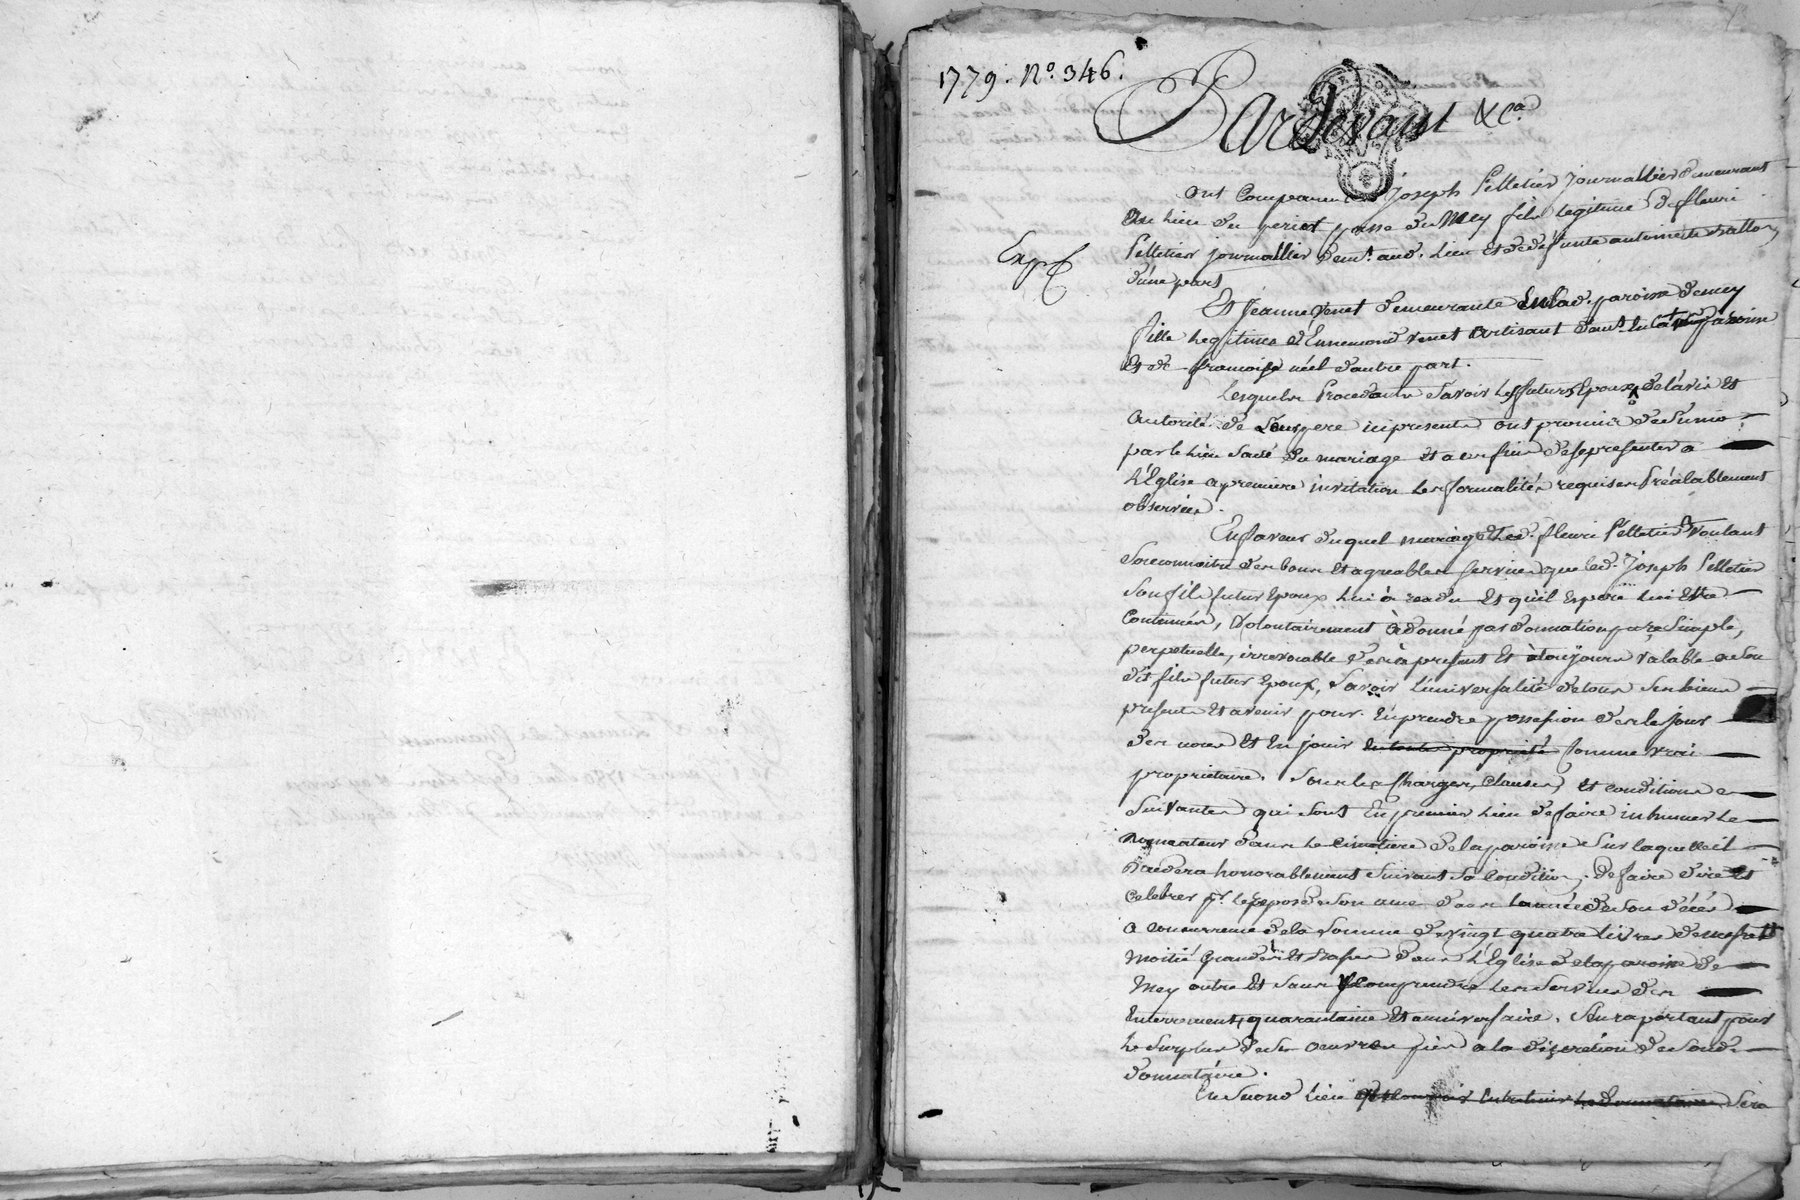 1779. N.º 346.
Pardevant &c.ª
ont Comparu Joseph Pelletier journallier demeurant
au Lieu du periat passe de Mey fils legitime de fleuri
Expé
Pelletier journallier dem.t aud. Lieu et de defunte antoinette
d'une part
Et jeanne Venet demeurante en lad. paroisse de mey
fille Legitime d'Ennemond Venet artisant dans paroisse
et de francoise néel d'autre part.
Lesquels Procedants Savoir Les futurs Epoux de l'avis et
autorité de Leurs pere ici presents ont promis de S'unir
par le Lien Sacré du mariage et a ces fins de se presenter a
L'Eglise a premiere invitation Les formalités requises Préalablement
observées.
En faveur duquel mariage Led. fleuri Pelletier Voulant
reconnoitre des bons et agreables services que led. Joseph Pelletier
Son fils futur Epoux Lui à rendu et qu'il espere Lui Etre
Continués, Volontairement à donné par donnation pure Simple,
perpetuelle, irrevocable dès à present et à toujours valable a Son
dit fils futur Epoux, Savoir L'universalité de tous Ses biens
presents et avenir pour En prendre possession dès le jour
des noces et En jouir en toute proprieté Comme vrai
proprietaire. Sous les Charges, Clauses et conditions
Suivantes qui Sont En premier Lieu de faire inhumer Le
Donnateur dans Le Cimetiere de la paroisse Sur laquelle il
decedera honorablement Suivant Sa Condition, De faire dire et
Celebrer p.r Le repos de Son ame dans L'année de Son décés
a concurrence de la Somme de vingt quatre livres de messes
Moitié grandes et basses dans L'Eglise de la paroisse de
Mey outre et Sans y Comprendre Les Services des
Enterrement, quarantaine et anniversaire. S'en raportant pour
Le Surplus de Ses oeuvres pies a la discretion de Sond.
donnataire.
En Second Lieu Le donnataire Sera